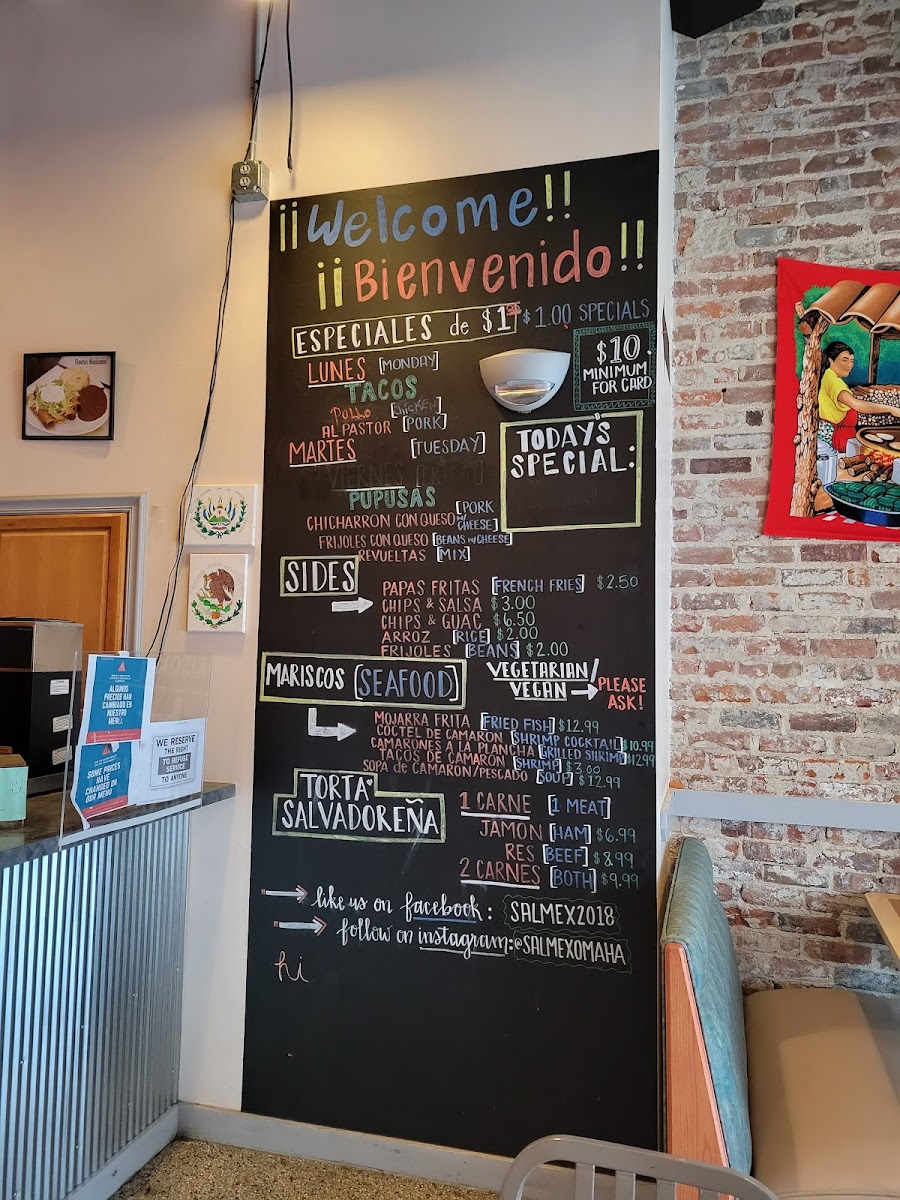 ¡¡Welcome!!
¡¡Bienvenido!!
ESPECIALES de $1 $1.00 SPECIALS
$10
MINIMUM
FOR CARD
LUNES [MONDAY]
TACOS
POLLO [CHICKEN]
AL PASTOR [PORK]
MARTES [TUESDAY]
VIERNES [FRIDAY]
TODAY'S
SPECIAL:
PUPUSAS
CHICHARRON CON QUESO [PORK w/ CHEESE]
FRIJOLES CON QUESO [BEANS w/ CHEESE]
REVUELTAS [MIX]
SIDES
PAPAS FRITAS [FRENCH FRIES] $2.50
CHIPS & SALSA $3.00
CHIPS & GUAC $6.50
ARROZ [RICE] $2.00
FRIJOLES [BEANS] $2.00
MARISCOS [SEAFOOD]
VEGETARIAN/
VEGAN → PLEASE
ASK!
MOJARRA FRITA [FRIED FISH] $12.99
COCTEL DE CAMARON [SHRIMP COCKTAIL] $10.99
CAMARONES A LA PLANCHA [GRILLED SHRIMP] $12.99
TACOS DE CAMARÓN [SHRIMP] $3.00
SOPA de CAMARÓN/PESCADO [SOUP] $12.99
TORTA
SALVADOREÑA
1 CARNE [1 MEAT]
JAMON [HAM] $6.99
RES [BEEF] $8.99
2 CARNES [BOTH] $9.99
like us on facebook: SALMEX2018
follow on instagram: @SALMEXOMAHA
hi
ALGUNOS
PRECIOS HAN
CAMBIADO EN
NUESTRO
MENÚ.
SOME PRICES
HAVE
CHANGED ON
OUR MENU
WE RESERVE
THE RIGHT
TO REFUSE
SERVICE
TO ANYONE